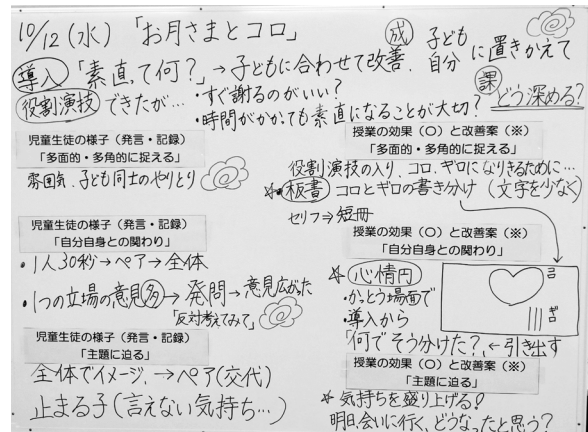 10/12(水)「お月さまとコロ」
成 子ども 自分 に置きかえて
導入「素直って何?」→子どもに合わせて改善.
課 どう深める?
役割演技 できたが…
・すぐ謝るのがいい?
・時間がかかっても素直になることが大切?
児童生徒の様子(発言・記録)
「多面的・多角的に捉える」
雰囲気.子ども同士のやりとり
児童生徒の様子(発言・記録)
「自分自身との関わり」
・1人30秒→ペア→全体
・1つの立場の意見多→発問→意見広がった
「反対考えてみて」
児童生徒の様子(発言・記録)
「主題に迫る」
全体でイメージ.→ペア(交代)
止まる子(言えない気持ち…)
授業の効果(O)と改善案(※)
「多面的・多角的に捉える」
役割演技の入り、コロ、ギロになりきるために…
☆板書 コロとギロの書き分け(文字を少なく)
セリフ⇒短冊
授業の効果(O)と改善案(※)
「自分自身との関わり」
☆心情円
・かっとう場面で
・導入から
「何でそう分けた?」←引き出す
コ
ギ
授業の効果(O)と改善案(※)
「主題に迫る」
☆気持ちを盛り上げる!
明日、会いに行く、どうなったと思う?